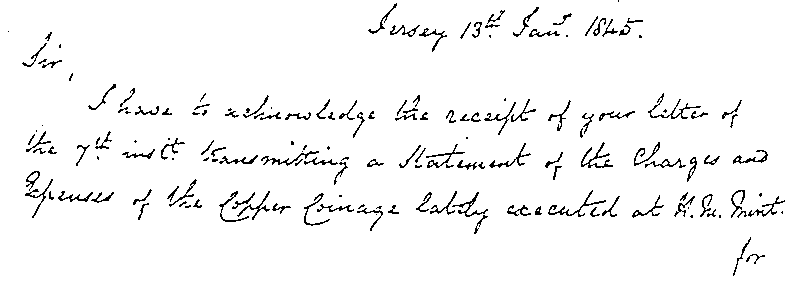 Jersey 13th Jany. 1845.
Sir,
I have to acknowledge the receipt of your letter of
the 7th instt. transmitting a Statement of the Charges and
Expenses of the Copper Coinage lately executed at H.M. Mint.
for